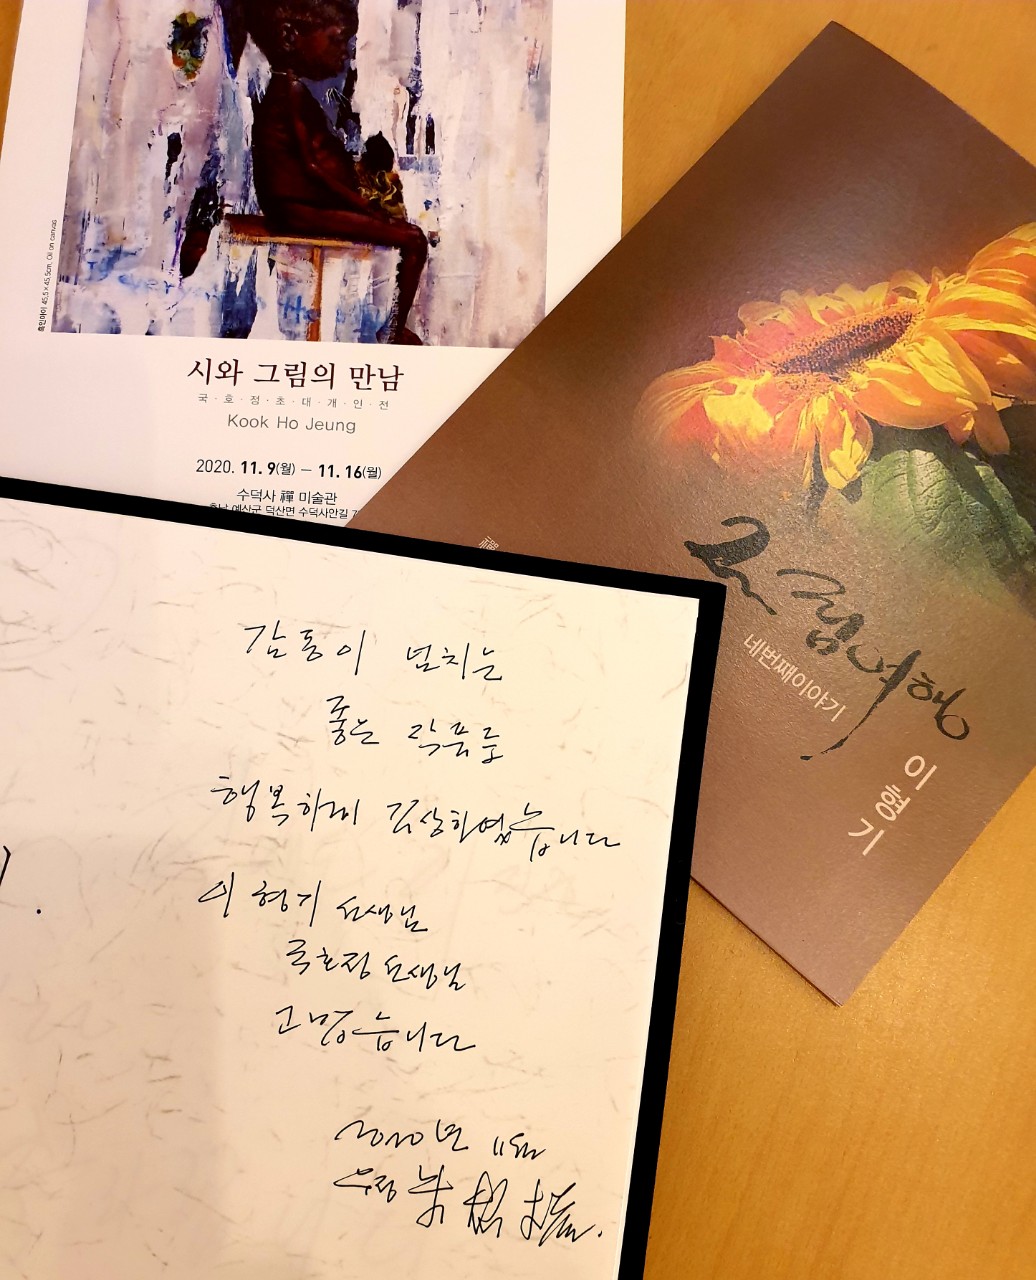 흑인아이 45.5×45.5cm, Oil on canvas
시와 그림의 만남
국·호·정·초·대·개·인·전
Kook Ho Jeung
2020. 11. 9(월) – 11. 16(월)
수덕사 禪 미술관
예산군 덕산면 수덕사안길
그림여행
네번째이야기
이형기
감동이 넘치는
좋은 작품들
행복하게 감상하였습니다
이형기 선생님
국호정 선생님
고맙습니다
2020년 11월